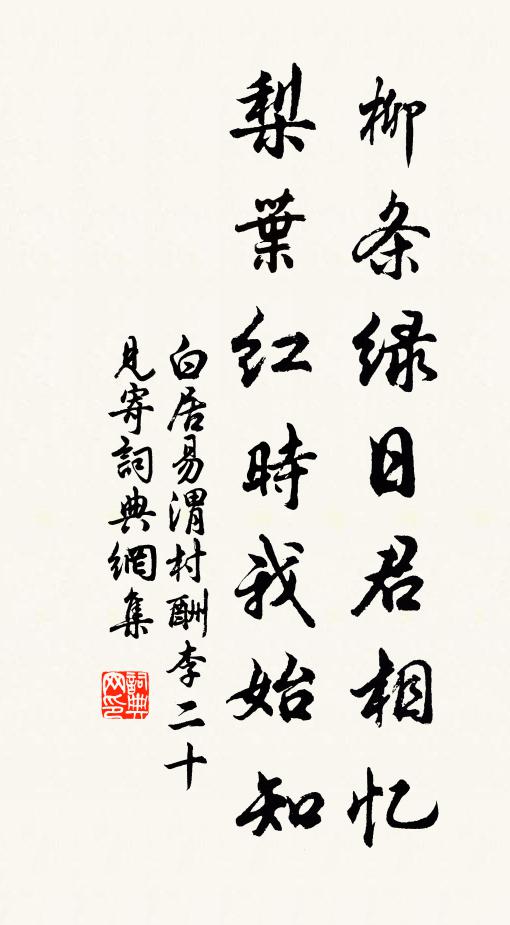 柳条绿日君相忆
梨葉紅時我始知
白居易渭村酬李二十
見寄詞典網集
詞典
网印